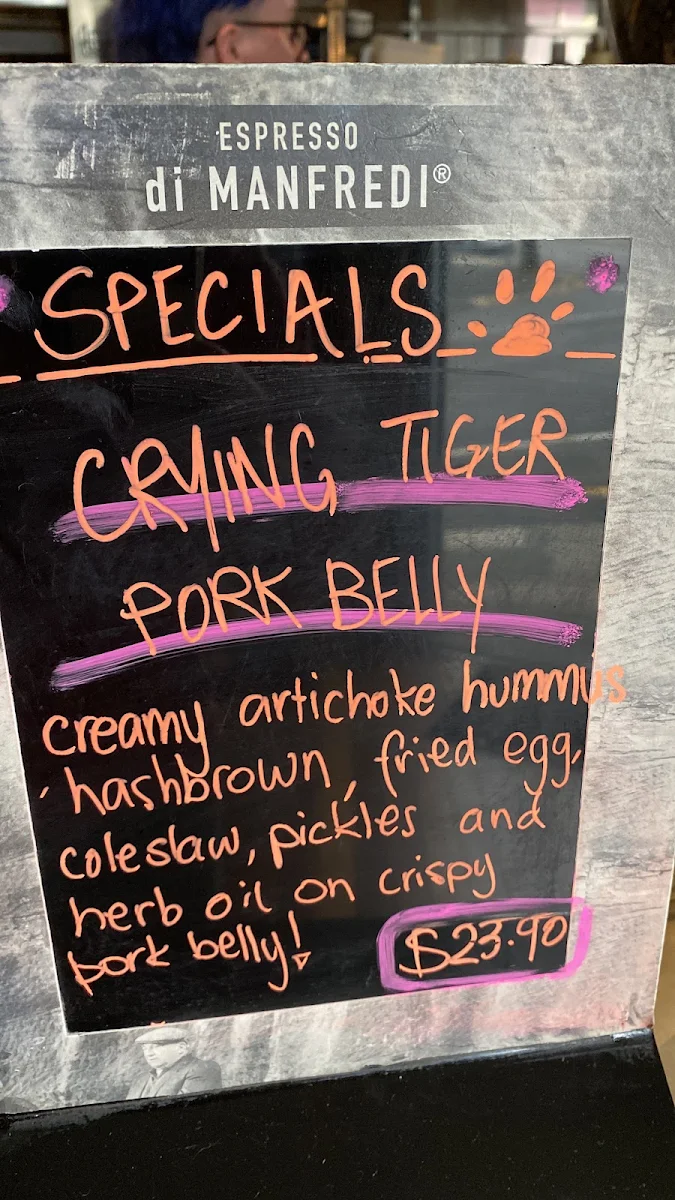 ESPRESSO
di MANFREDI®
SPECIALS
CRYING TIGER
PORK BELLY
creamy artichoke hummus
, hashbrown, fried egg,
coleslaw, pickles and
herb oil on crispy
pork belly!
$23.90